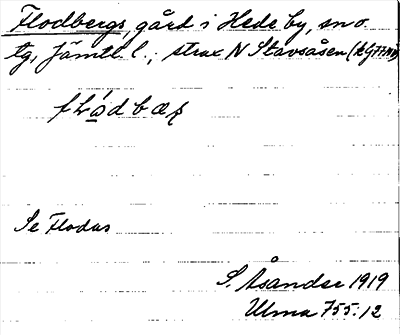 Flodbergs, gård i Hede by, sn o.
tg, Jämtl l.; strax N Stavsåsen
Se Flodas
S. Åsander 1919
Ulma 755:12